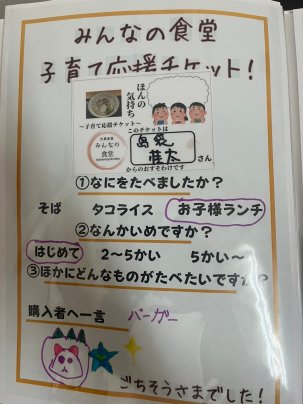 みんなの食堂
子育て応援チケット！
ほんの
気持ち
～子育て応援チケット～
このチケットは
みんなの
食堂
島袋
さん
からのおすそわけです
①なにをたべましたか？
そば タコライス お子様ランチ
②なんかいめですか？
はじめて 2～5かい 5かい～
③ほかにどんなものがたべたいですか？
購入者へ一言 バーガー
ごちそうさまでした！